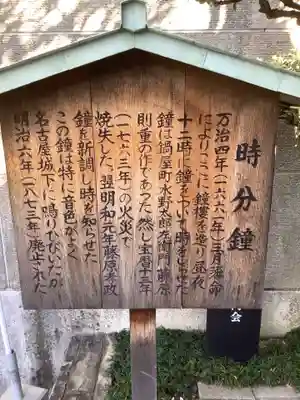 時分鐘
万治四年(一六六一年)三月藩命
によりここに鐘楼を造り昼夜
十二時に鐘をついて時をしらせた
鐘は鍋屋町水野太郎左衛門藤原
則重の作であった然し宝暦十三年
(一七六三年)の火災で
焼失した翌明和元年藤原孝政
鐘を新調し時を知らせた
この鐘は特に音色がよく
名古屋城下に鳴りひびいたが
明治六年(一八七三年)廃止された
会